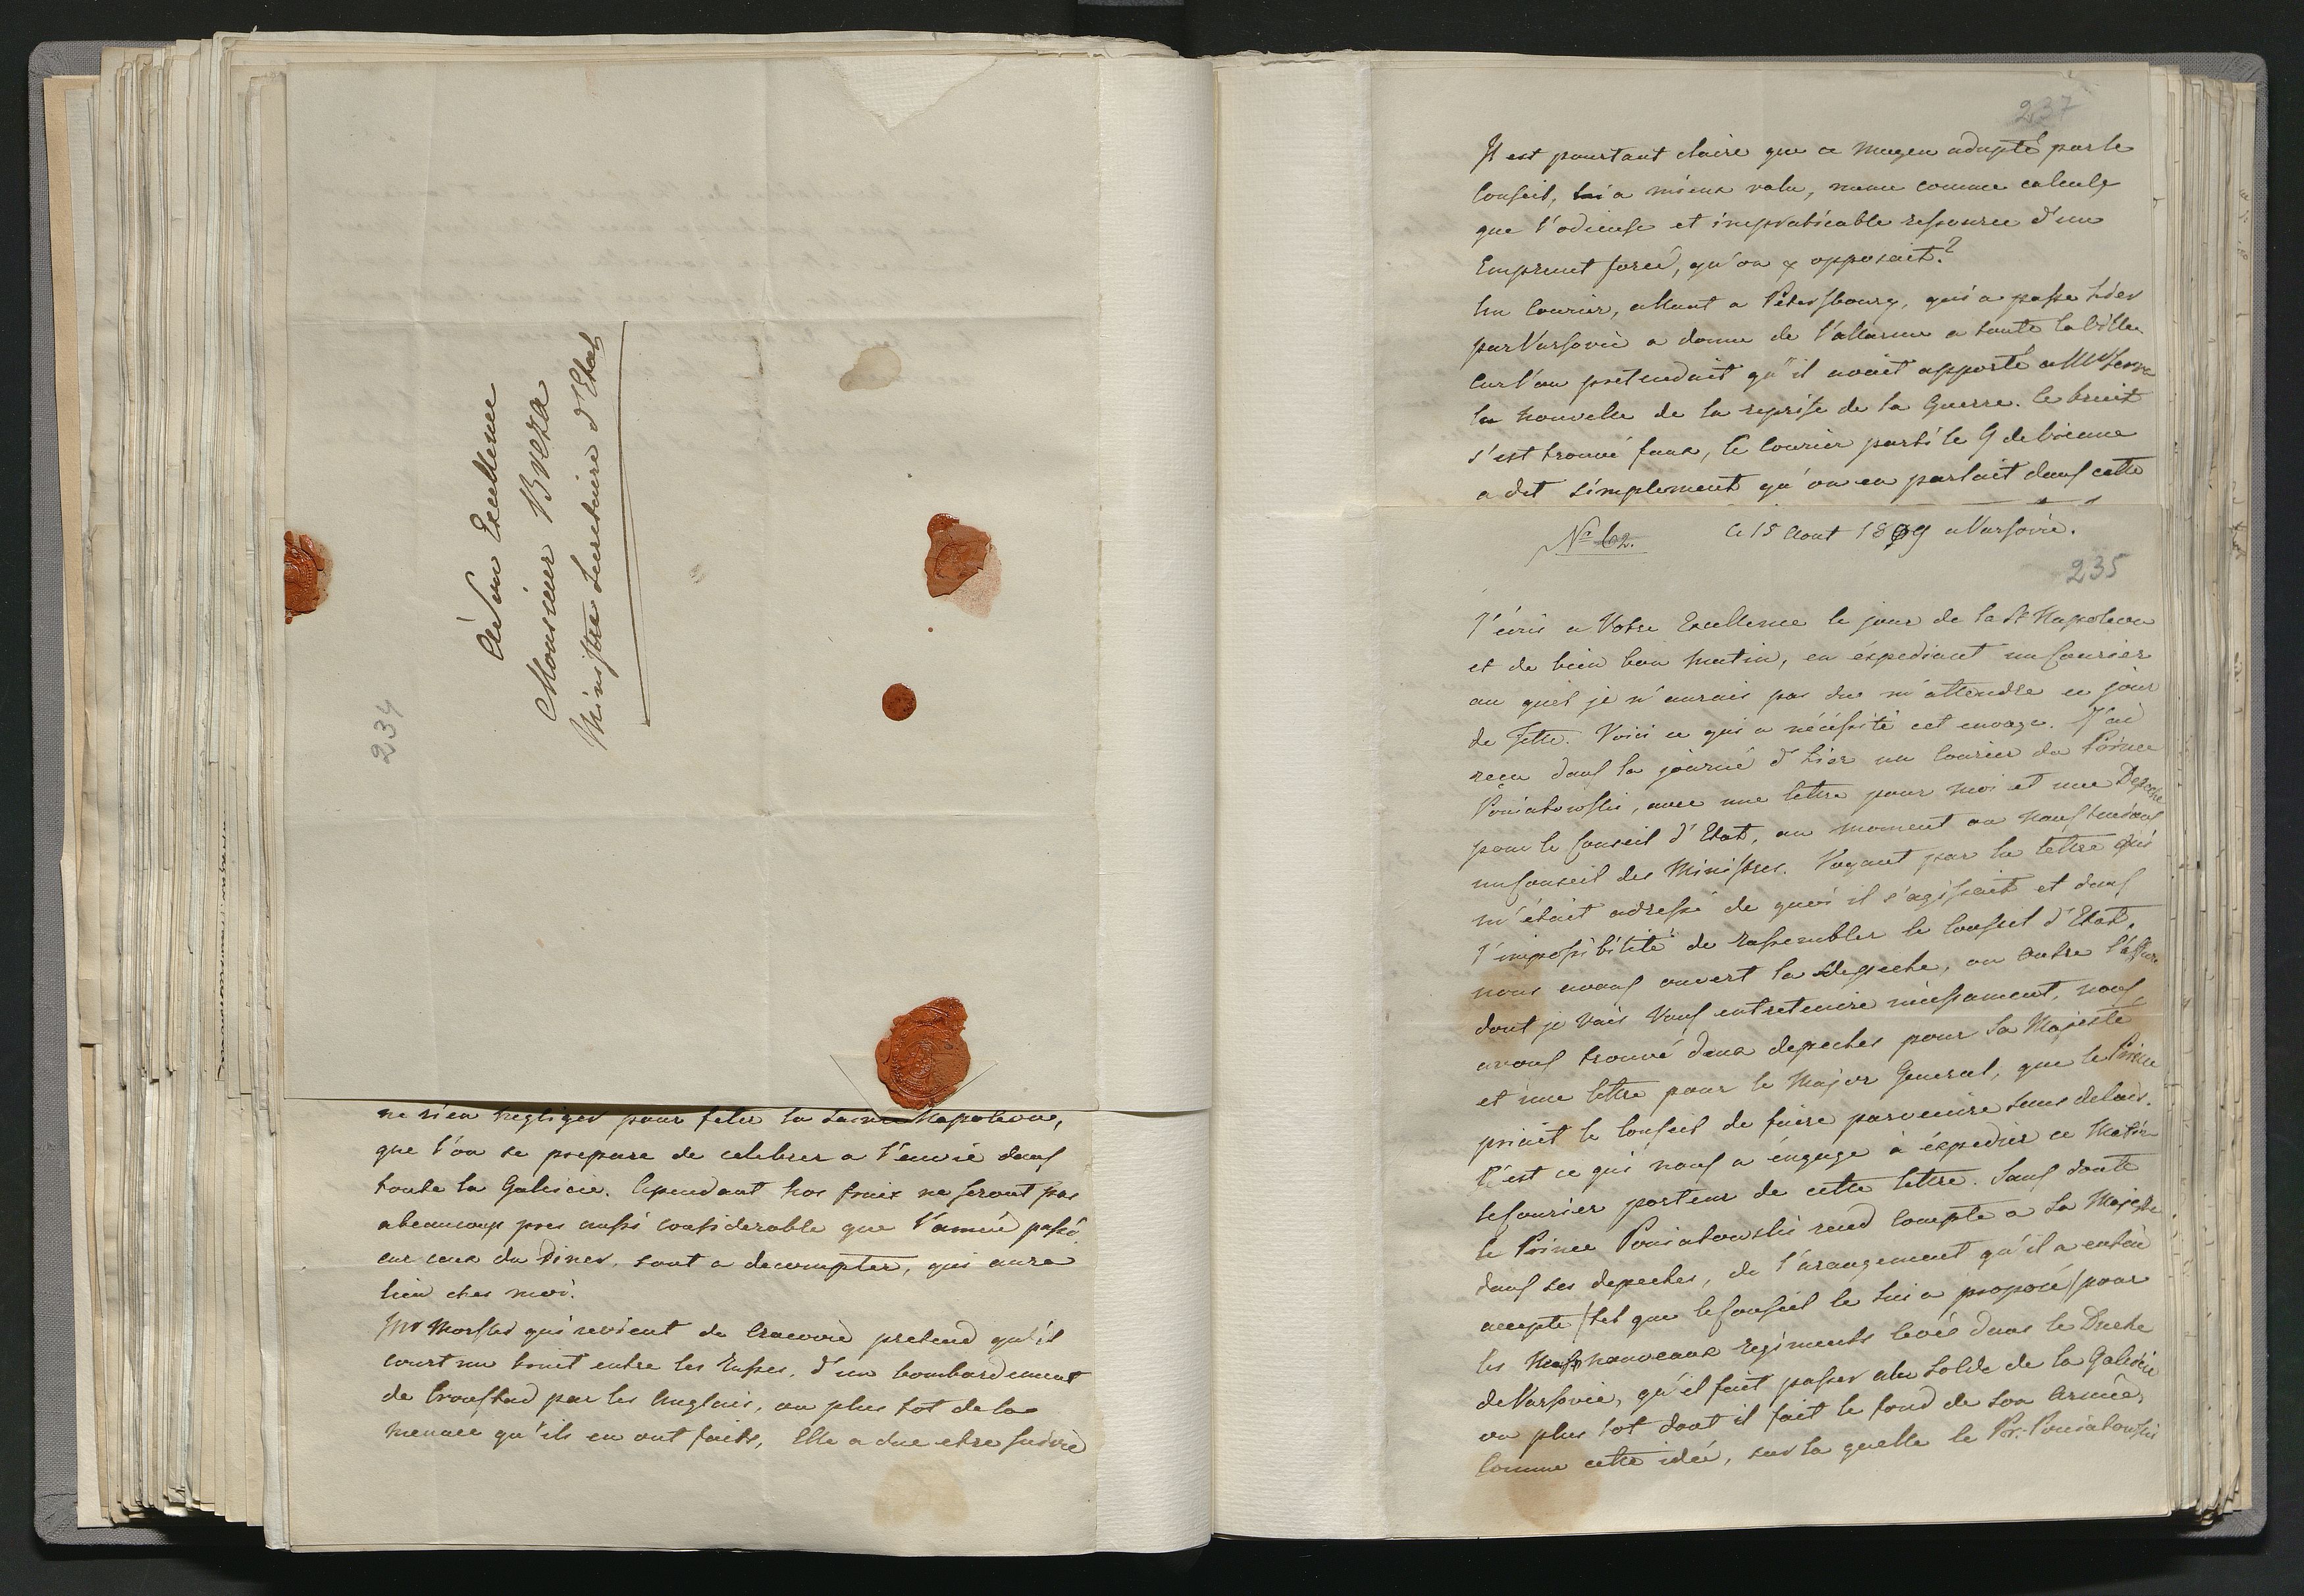 A Son Excellence
Monsieur Breza
Ministre Secretaire d'Etat
234
ne rien negliger pour feter la Saint Napoleon,
que l'on se prepare de celebrer a l'envie dans
toute la Galicie. Cependant nos fraix ne seront pas
a beaucoup pres aussi considerable que l'année passé
car ceux du Diner, sont a decompter, qui aura
lieu ches moi.
Mr Morski qui revient de Cracovie pretend qu'il
court un bruit entre les Russes, d'un bombardement
de Cronstad par les Anglais, ou plus tot de la
menace qu'ils en ont faite, Elle a due etre suivie
237
Il est pourtant claire que ce moyen adopté par le
Conseil, a mieux valu, meme comme calcule
que l'odieuse et impraticable ressource d'un
Emprunt forcé, qu'on y opposait?
Un Courier, allant a Petersbourg, qui a passe hier
par Varsovie a donne de l'allarme a toute la Ville
car l'on pretendait qu'il avait apporté a Mr Serra
la nouvelle de la reprise de la Guerre. Ce bruit
s'est trouvé faux, le Courier parti le 9 de Vienne
a dit simplement qu'on en parlait dans cette
N° 62. Ce 15 Aout 1809 a Varsovie.
235
J'ecris a Votre Excellence le jour de la St Napoleon
et de bien bon matin, en éxpediant un Courier
au quel je n'aurais pas due m'attendre en jour
de Fette. Voici ce qui a nécéssité cet envoye. J'ai
reçu dans la journé d'hier un Courier du Prince
Poniatowski, avec une lettre pour moi et une Depeche
pour le Conseil d'Etat, au moment ou nous tenions
un Conseil des Ministres. Voyant par la lettre qui
m'était adressé de quoi il s'agissait et dans
l'impossibilité de rassembler le Conseil d'Etat,
nous avons ouvert la depeche, ou outre l'affaire
dont je vais Vous entretenire incessament, nous
avons trouvé deux depeches pour Sa Majesté
et une lettre pour le Major General, que le Prince
priait le Conseil de faire parvenire sans delais.
C'est ce qui nous a éngagé à éxpedier ce Matin
le Courier porteur de cette lettre. Sans doute
le Prince Poniatowski rend compte a Sa Majesté
dans ses depeches, de l'arangement qu'il a enfin
accepte /tel que le Conseil le lui a proposé/ pour
les nouveaux regiments levés dans le Duche
de Varsovie, qu'il fait passer a la Solde de la Galicie
ou plus tot dont il fait le fond de son Armée,
Comme cette idée, sur la quelle le Pr. Poniatowski